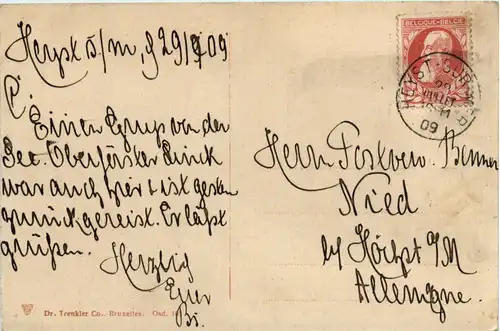 Heyst s/m, d 29/7 09
Einen Gruss von der
See. Oberförster
war auch hier & ist gestern
zurückgereist. Er läßt
grüßen.
Herzlich
BELGIQUE-BELGIË
HEYST-SUR-MER
29
JUILLET
09
Herrn Forstverw. Benner
Nied
bei Höchst a/M
Allemagne.
Dr. Trenkler Co., Bruxelles.